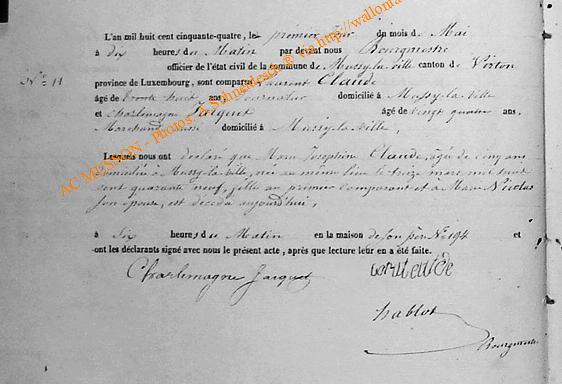 L'an mil huit cent cinquante-quatre, le premier jour du mois de Mai
à dix heures du Matin par devant nous Bourgmestre
officier de l'état civil de la commune de Mussy-la-Ville canton de Virton
N° 11 province de Luxembourg, sont comparus Claude
âgé de trente huit ans domicilié à Mussy-la-Ville
et Charlemagne Jacquet âgé de vingt quatre ans
Marchand domicilié à Mussy-la-Ville,
Lesquels nous ont déclaré que Marie Josephine Claude, agée de cinq ans
domiciliée à Mussy-la-ville, née au même lieu le treize mars mil huit
cent quarante neuf, fille au premier comparant et à Marie Nicolas
son épouse, est décédée aujourd'hui,
à Six heures du Matin en la maison de son père N° 194 et
ont les déclarants signé avec nous le présent acte, après que lecture leur en a été faite.
Charlemagne Jacquet
hablot
Bourgmestre
AC MUSSON - Photos A. Schneider @ via http://wallonia